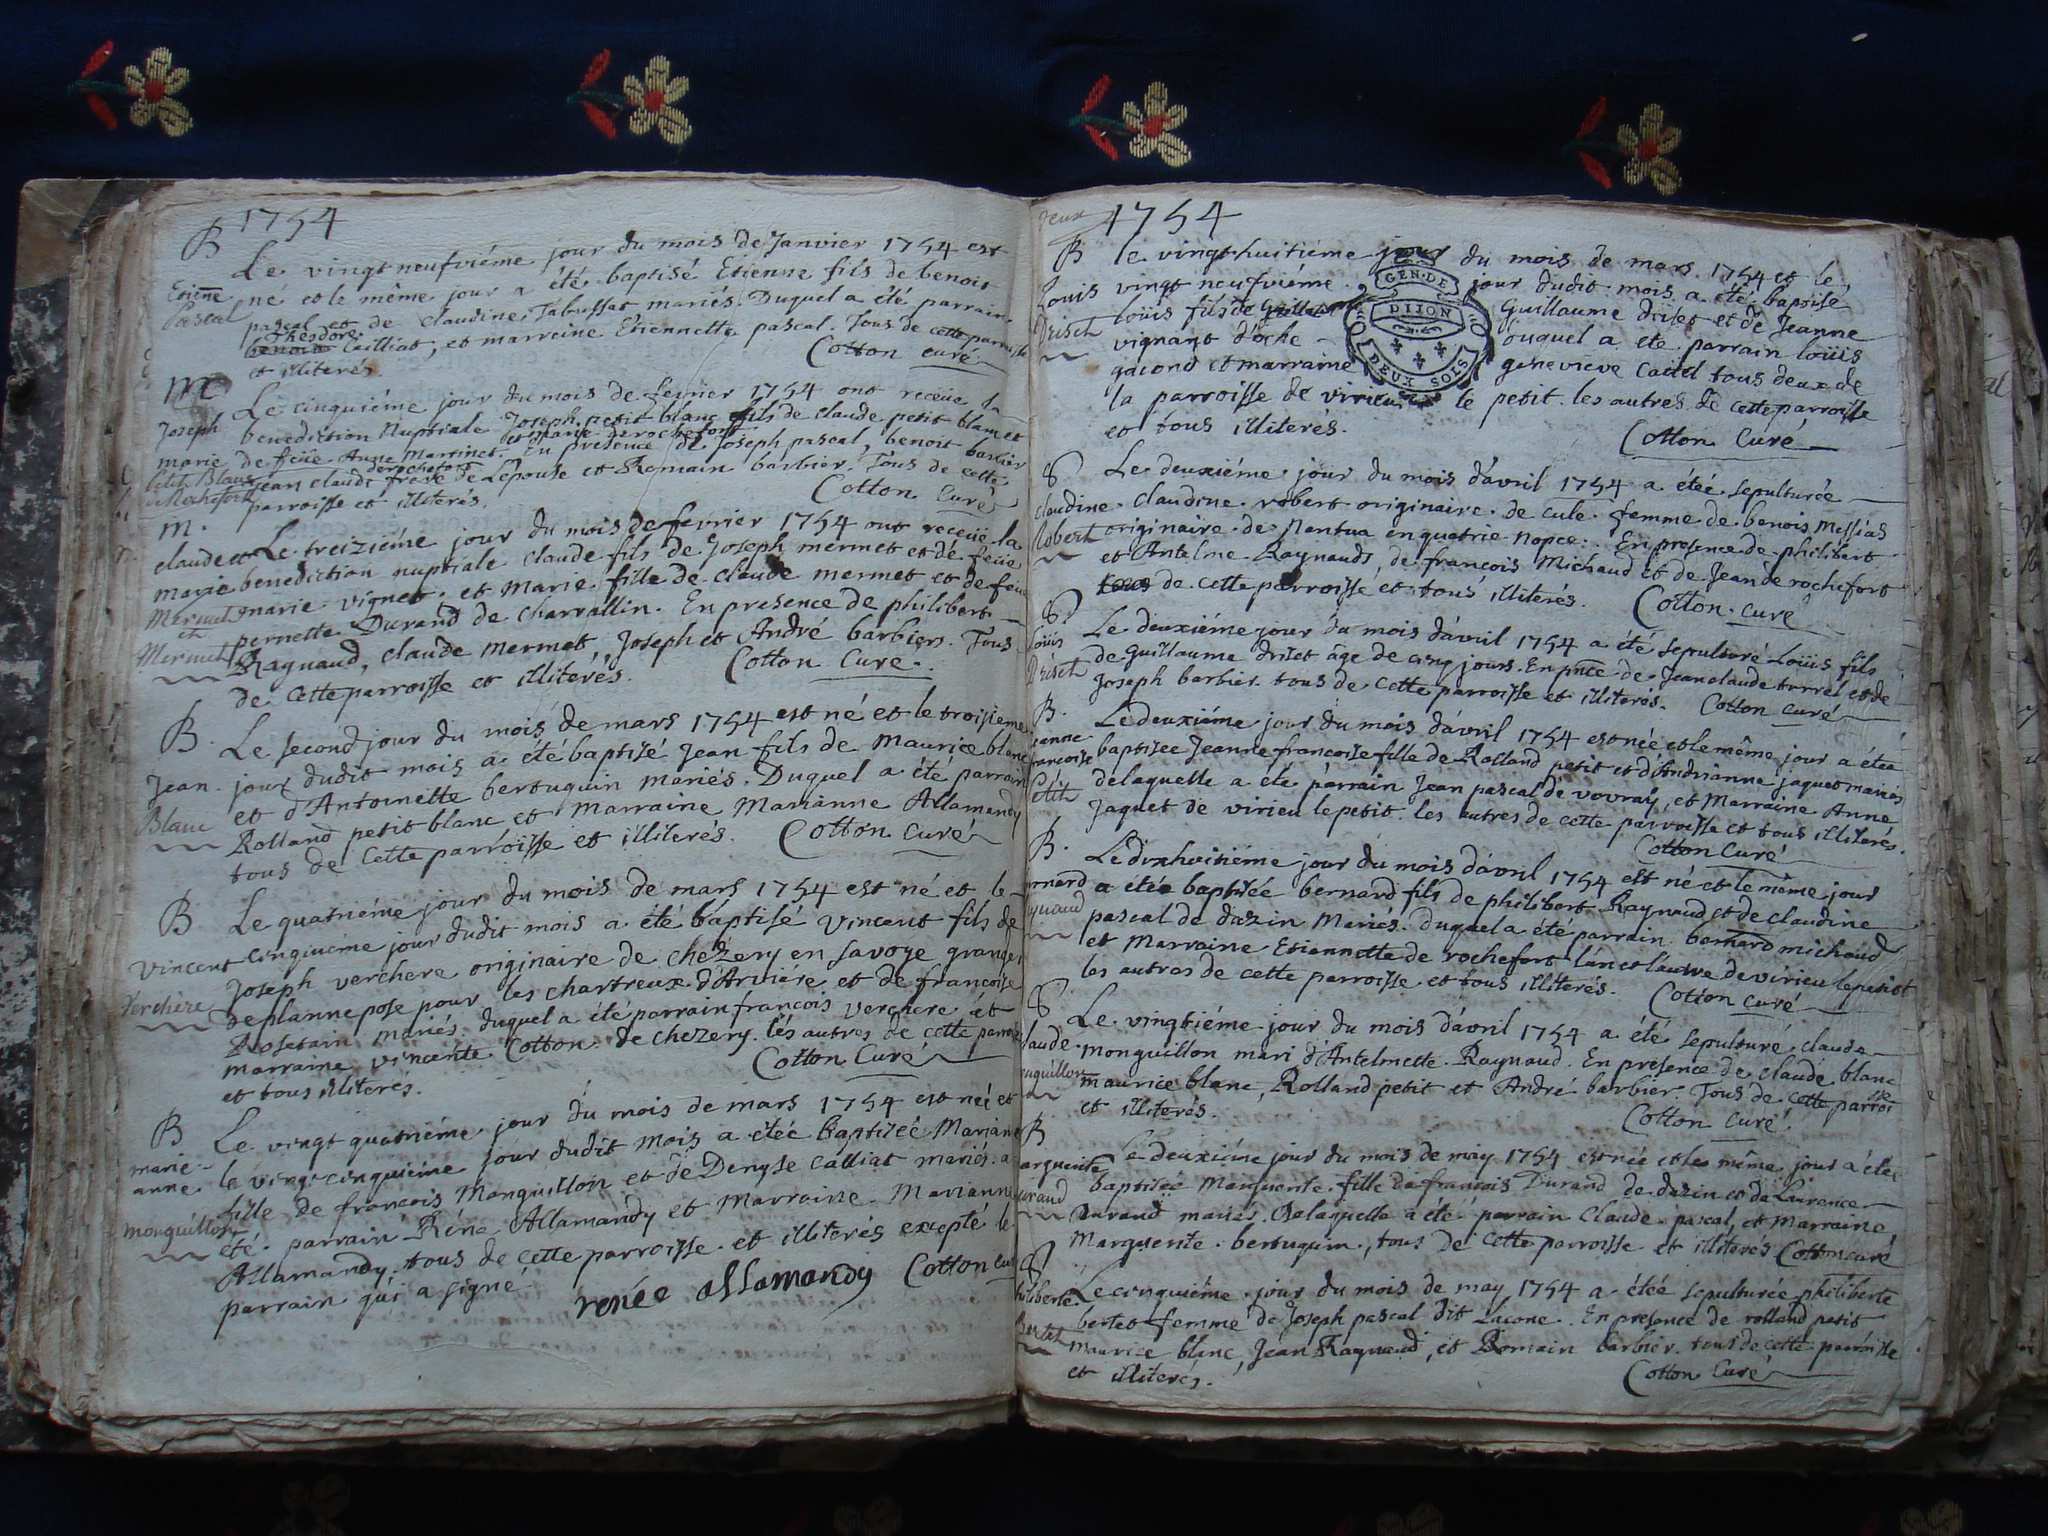 1754
B
Le vingt neufviéme jour du mois de Janvier 1754 est
Etienne né et le même jour a été baptisé Etienne fils de benoit
Pascal pascal et de Claudine Tabussat mariés. Duquel a été parrain
Théodore
benoit Cailliat, et marreine Etiennette pascal. Tous de cette parroisse
et illiterés Cotton curé
M
Le cinquiéme jour du mois de fevrier 1754 ont receüe la
Joseph benediction Nuptiale Joseph petit blanc fils de claude petit blanc et
et marie derochefort
marie de feüe Anne Martinet. En presence de Joseph pascal, benoit barbier
derochefort
petit Blanc Jean claude frere de L'épouse et Romain barbier. Tous de cette
Rochefort parroisse et illiterés. Cotton Curé
M.
claude et Le treiziéme jour du mois de fevrier 1754 ont receüe la
marie benediction nuptiale claude fils de Joseph mermet et de feüe
Mermet marie vignet. et Marie fille de claude mermet et de feüe
et pernette Durand de charrallin. En presence de philibert
Mermet Raynaud, claude Mermet, Joseph et André barbiers. Tous
de cette parroisse et illiterés. Cotton Curé.
B. Le second jour du mois de mars 1754 est né et le troisieme
Jean jour dudit mois a été baptisé Jean fils de Maurice blanc
Blanc et d'Antoinette bertuquin mariés. Duquel a été parrain
Rolland petit blanc et Marraine Marianne Allamandy
tous de cette parroisse et illiterés. Cotton Curé
B Le quatriéme jour du mois de mars 1754 est né et le
Vincent cinquiéme jour dudit mois a été baptisé Vincent fils de
Verchère Joseph verchere originaire de chézery en Savoye granger
de plannepose pour les chartreux d'Arviére et de francoise
Rosetain mariés. duquel a été parrain francois verchere et
marraine vincente Cotton de chezery. les autres de cette parroisse
et tous illiterés. Cotton Curé
B Le vingt quatriéme jour du mois de mars 1754 est née et
marie le vingt cinquiéme jour dudit mois a étée baptiséé Mariane
anne fille de francois Monguillon et de Denyse Calliat mariés. a
Monguillon été parrain Réné Allamandy et Marraine Marianne
Allamandy. tous de cette parroisse et illiterés excepté le
parrain qui a signé.
renée allamandy Cotton cu
Deux 1754
B le vingt huitiéme jour du mois de mars 1754 et le
Louis vingt neufviéme jour dudit mois a été baptise
Driset loüis fils de Guillaume Guillaume driset et de Jeanne
vignant d'oche duquel a été parrain loüis
gacond et marraine geneviève Caitil tous deux de
la parroisse de virieu le petit. les autres de cette parroisse
et tous illiterés. Cotton Curé
GEN. DE
DIJON
DEUX SOLS
S Le deuxiéme jour du mois d'avril 1754 a étée sepulturée
claudine claudine robert originaire de cule femme de benois Messias
Robert originaire de Nantua en quatrie nopce. En presence de philibert
et Antelme Raynauds, de francois Michaud et de Jean de rochefort
tous de cette parroisse et tous illiterés. Cotton curé
S Le deuxiéme jour du mois d'avril 1754 a été sepulturé Loüis fils
Loüis de Guillaume driset âge de cinq jours. En pnce de Jean claude turrel et de
Driset Joseph barbier. tous de cette parroisse et illiterés. Cotton curé
B. Le deuxiéme jour du mois d'avril 1754 est née et le même jour a étée
jeanne baptisee Jeanne francoise fille de Rolland petit et d'Andrianne jaquet mariés
francoise de laquelle a été parrain Jean pascal de vovray, et Marraine Anne
Petit Jaquet de virieu le petit. les autres de cette parroisse et tous illiterés.
Cotton Curé
B. Le dixhuitiéme jour du mois d'avril 1754 est né et le même jour
ernard a étée baptisée bernard fils de philibert Raynaud et de claudine
ynaud pascal de dazin Mariés. Duquel a été parrain bernard michaud
et Marraine Etiennette de rochefort l'un et l'autre de virieu le petit
les autres de cette parroisse et tous illiterés. Cotton curé
S Le vingtiéme jour du mois d'avril 1754 a été sepulturé claude
laude monguillon mari d'Antelmette Raynaud. En présence de claude blanc
nguillon maurice blanc, Rolland petit et André barbier. Tous de cette parroisse
et illiterés. Cotton Curé
B Le deuxiéme jour du mois de may 1754 est née et le même jour a étée
arguerite baptisée Marguerite fille de francois Durand de dazin et de Laurence
urand Durand mariés. De laquelle a été parrain Claude pascal, et Marraine
Marguerite bertuquin, tous de cette parroisse et illiterés Cotton curé
S Le cinquiéme jour du mois de may 1754 a étée sepulturée philiberte
hiliberte bertet femme de Joseph pascal dit Lacone. En presence de rolland petit
Bertet maurice blanc, Jean Raynaud, et Romain barbier. tous de cette parroisse
et illiterés. Cotton Curé